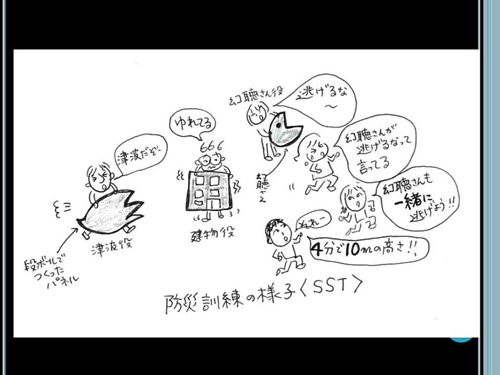 津波だぞ~
津波役
段ボールで
つくった
パネル
ゆれてる
建物役
幻聴さん役
逃げるな
~
幻聴さんが
逃げるなって
言ってる
幻聴さんも
一緒に
逃げよう!!
4分で10mの高さ!!
防災訓練の様子〈SST〉